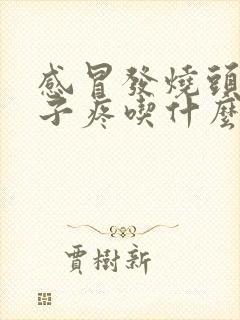 感冒發燒頭
子疼喫什麼
賈樹新